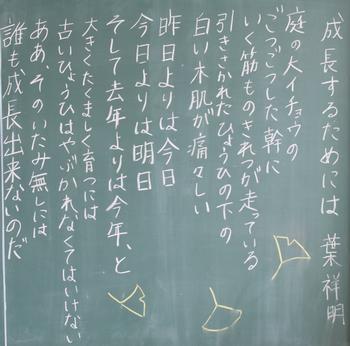 成長するためには 葉祥明
庭の大イチョウの
ごつごつした幹に
いく筋ものきれつが走っている
引きさかれたひょうひの下の
白い木肌が痛々しい
昨日よりは今日
今日よりは明日
そして去年よりは今年、と
大きくたくましく育つには
古いひょうひはやぶかれ、なくてはいけない
ああ、そのいたみ無しには
誰も成長出来ないのだ